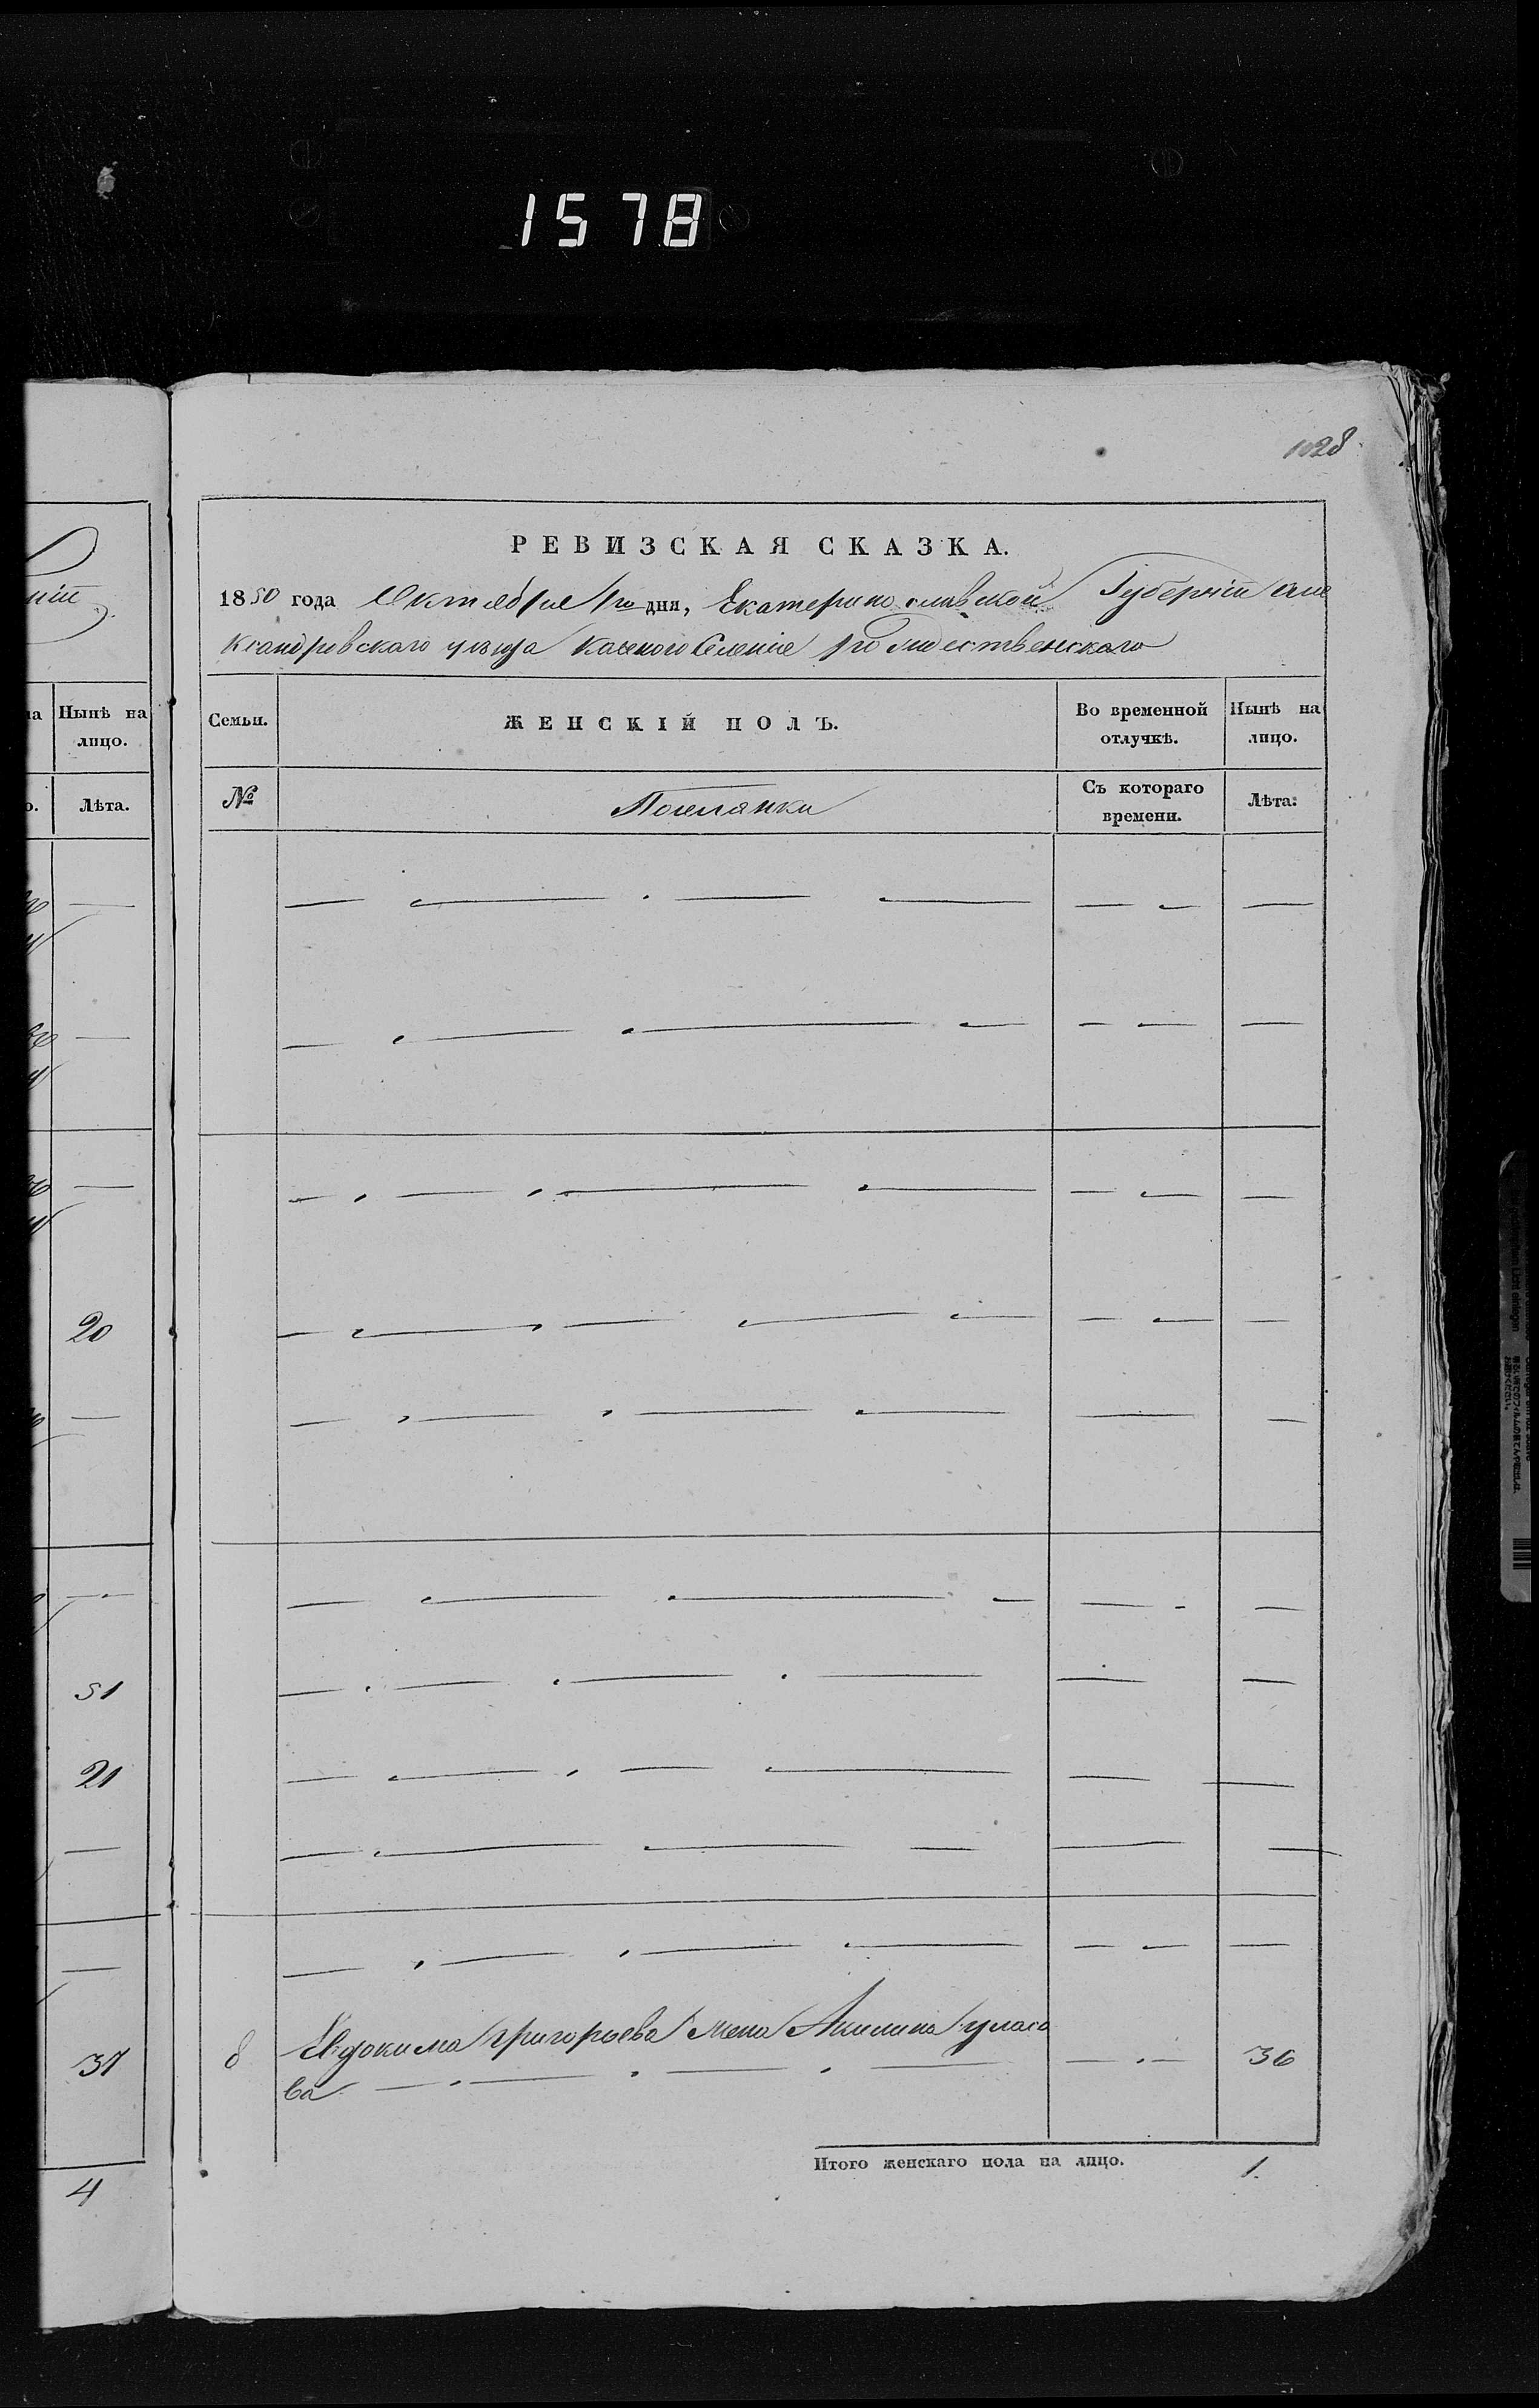 1578
1028
РЕВИЗСКАЯ СКАЗКА.
1850 года Октября 1го дня, Екатеринославской Губерніи але
ксандровскаго уѣзда казенного Селенія рождественскаго
на Нынѣ на лицо.
Лѣта.
Семьи. ЖЕНСКІЙ ПОЛЪ. Во временной отлучкѣ. Нынѣ на лицо.
№ Поселянки Съ котораго времени. Лѣта:
20
51
21
37
4
8 Евдокима григорьева жена Акилина уласо
ва 36
Итого женскаго пола на лицо. 1.